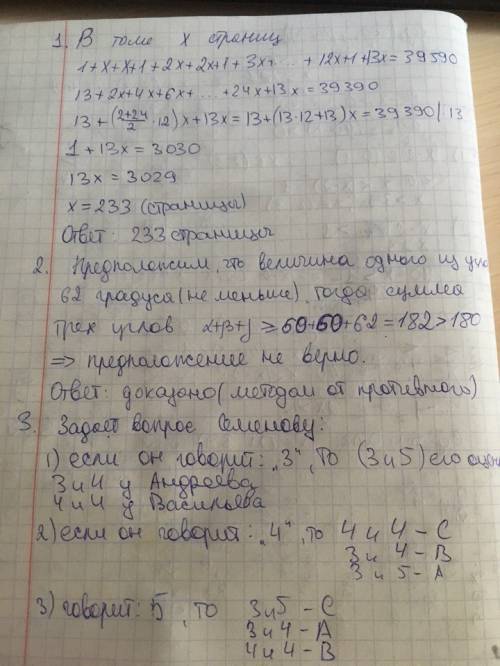 1. В томе x страниц
1+x+x+1+2x+2x+1+3x+ ... +12x+1+13x=39590
13+2x+4x+6x+ ... +24x+13x=39390
13+(2+24/2 · 12)x+13x=13+(13·12+13)x=39390 | 13
1+13x=3030
13x=3029
x=233 (страницы)
Ответ: 233 страницы
2. Предположим, что величина одного из
62 градуса (не меньше), тогда сумма
трех углов α+β+γ ≥ 60+60+62=182>180
=> предположение не верно.
Ответ: доказано (методом от противного)
3. Задает вопрос Семенову:
1) если он говорит: „3", то (3 и 5) его
3 и 4 у Андреева
4 и 4 у Васильева
2) если он говорит: „4", то 4 и 4 – С
3 и 4 – В
3 и 5 – А
3) говорит: 5, то 3 и 5 – С
3 и 4 – А
4 и 4 – В